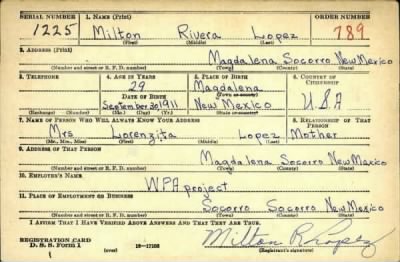 SERIAL NUMBER 1. NAME (Print) ORDER NUMBER
1225 Milton Rivera Lopez 789
(First) (Middle) (Last)
2. ADDRESS (Print)
Magdalena Socorro New Mexico
(Number and street or R. F. D. number) (Town) (County) (State)
3. TELEPHONE 4. AGE IN YEARS 5. PLACE OF BIRTH 6. COUNTRY OF CITIZENSHIP
29 Magdalena
DATE OF BIRTH (Town or county)
September 30, 1911 New Mexico U.S.A
(Exchange) (Number) (Mo.) (Day) (Yr.) (State or country)
7. NAME OF PERSON WHO WILL ALWAYS KNOW YOUR ADDRESS 8. RELATIONSHIP OF THAT PERSON
Mrs Lorenzita Lopez Mother
(Mr., Mrs., Miss) (First) (Middle) (Last)
9. ADDRESS OF THAT PERSON
Magdalena Socorro New Mexico
(Number and street or R. F. D. number) (Town) (County) (State)
10. EMPLOYER'S NAME
WPA project
11. PLACE OF EMPLOYMENT OR BUSINESS
Socorro Socorro New Mexico
(Number and street or R. F. D. number) (Town) (County) (State)
I AFFIRM THAT I HAVE VERIFIED ABOVE ANSWERS AND THAT THEY ARE TRUE.
REGISTRATION CARD
D. S. S. FORM 1 16-17105 Milton R Lopez
(Registrant's signature)